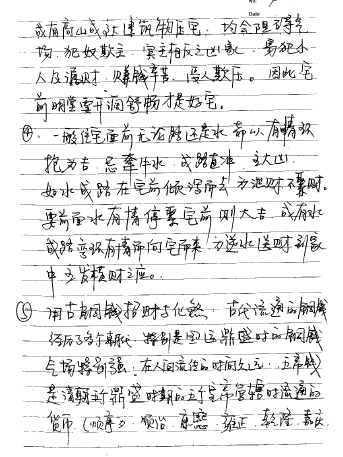 Date
或有高山或近建筑物压宅，均会阻碍气
场，犯奴欺主，宾主相反之凶象，易犯小
人及漏财，赚钱辛苦，受人欺压。因此宅
前明堂要开阔舒畅才是好宅。
④、一般住宅屋前无论路还是水都以有情环
抱为吉，忌牵牛水，或路直冲，主大凶
如水或路在宅前倾泻而去为泄财不聚财。
要前面水有情停聚宅前则大吉，或有水
或路弯环有情而向宅而来为逆水送财到家
中主发横财之应。
⑤、用古铜钱招财与化煞，古代流通的铜钱
经历了各个朝代，特别是国运鼎盛时的铜钱
气场特别强，在人间流传的时间久远，五帝钱
是清朝最鼎盛时期的五个皇帝管辖时流通的
货币（顺序）顺治 康熙 雍正 乾隆 嘉庆